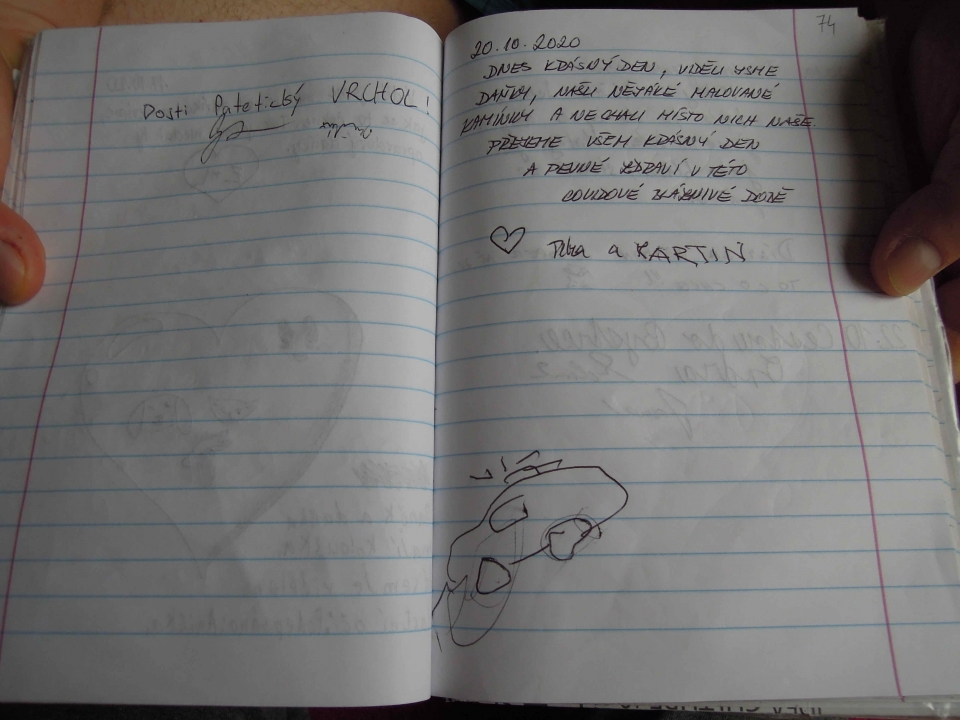 Dosti Patetický VRCHOL!
74
20.10.2020
DNES KRÁSNÝ DEN, VIDĚLI JSME
DAŇKY, NAŠLI NĚJAKÉ MALOVANÉ
KAMÍNKY A NECHALI MÍSTO NICH NAŠE.
PŘEJEME VŠEM KRÁSNÝ DEN
A PEVNÉ ZDRAVÍ V TÉTO
COVIDOVÉ BLÁZNIVÉ DOBĚ
a MARTIN